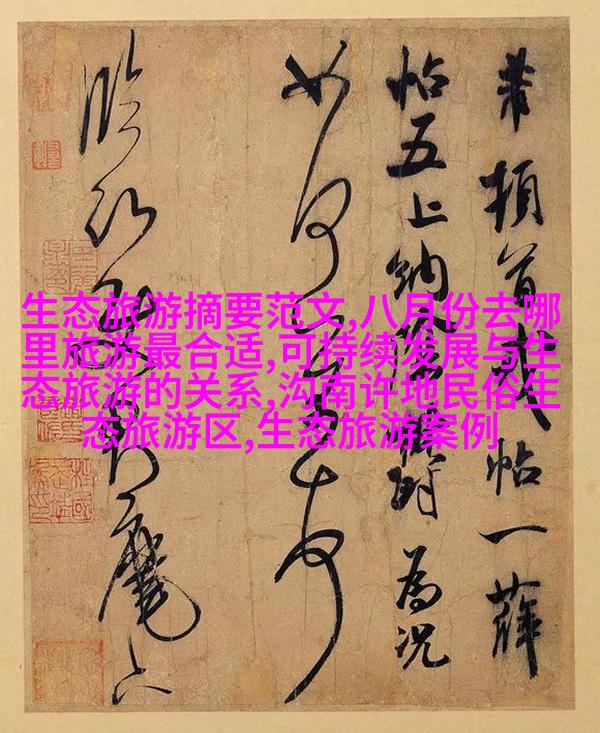 生态旅游摘要范文,八月份去哪
里旅游最合适,可持续发展与生
态旅游的关系,沟南许地民俗生
态旅游区,生态旅游案例
芾頓首戎帖一薛
帖五上納為況
如何
臨沂使君麾下